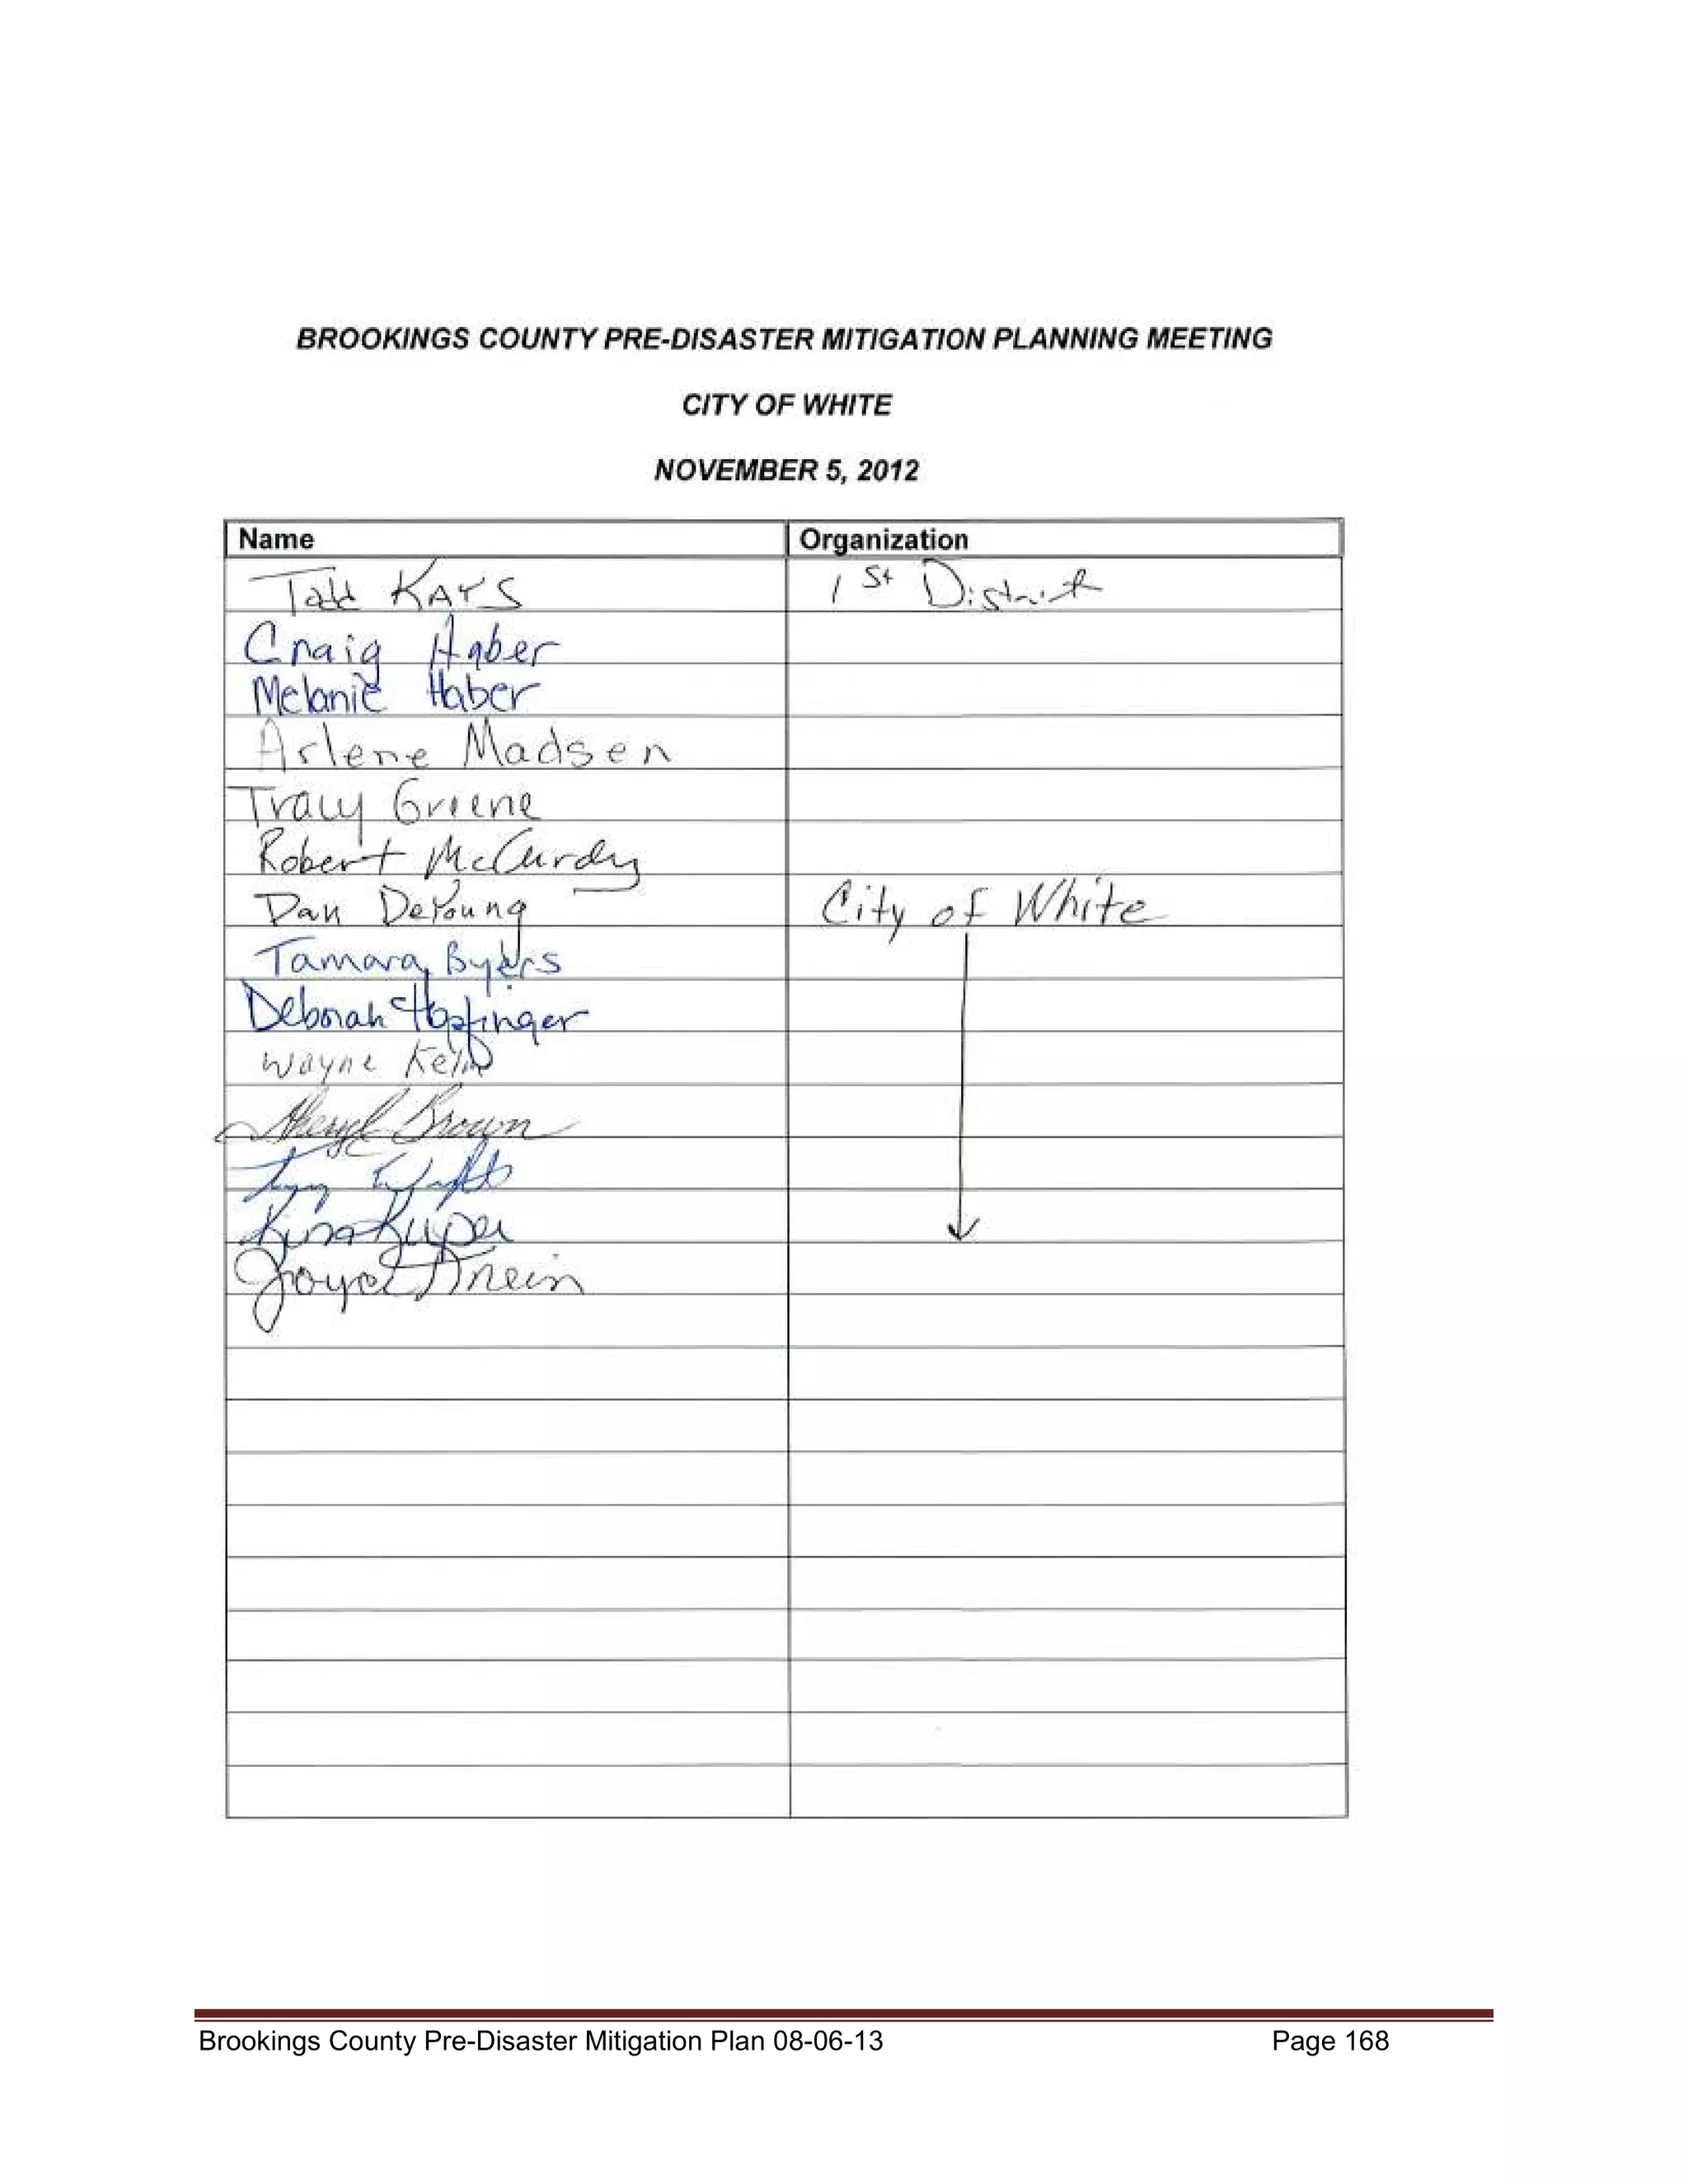 BROOKINGS COUNTY PRE-DISASTER MITIGATION PLANNING MEETING
CITY OF WHITE
NOVEMBER 5, 2012
Name Organization
Todd KAYS 1st District
Craig Haber
Melanie Haber
Arlene Madsen
Tracy Greene
Robert McCurdy
Dan DeYoung City of White
Tamara Byers
Deborah Hopfinger
Wayne
Sheryl Brown
Kuper
Joyce
Brookings County Pre-Disaster Mitigation Plan 08-06-13 Page 168